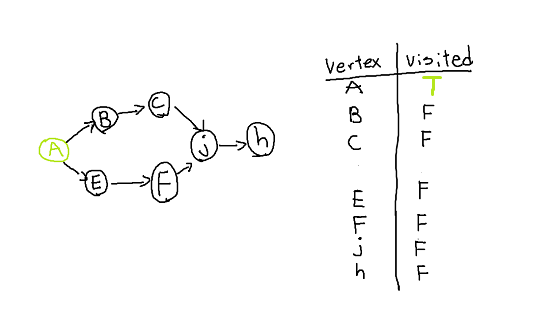 A
B
C
E
F
j
h
Vertex Visited
A T
B F
C F
E F
F F
j F
h F